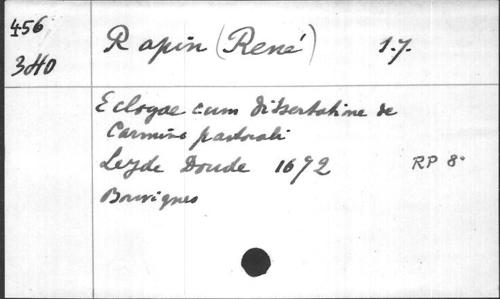 456
3H0
Rapin (René) 1.7.
Eclogae cum dissertatine de
Carmine pastorali
Leyde Doude 1672 RP 8°
Bouvignes